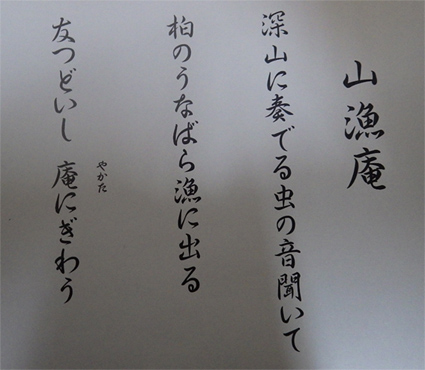 山漁庵
深山に奏でる虫の音聞いて
柏のうなばら漁に出る
友つどいし 庵にぎわう
やかた